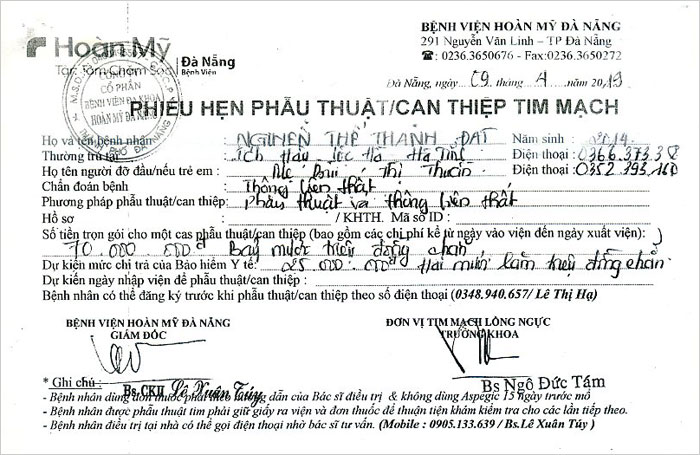 BỆNH VIỆN HOÀN MỸ ĐÀ NẴNG
291 Nguyễn Văn Linh – TP Đà Nẵng
☎: 0236.3650676 - Fax:0236.3650272
Hoàn Mỹ
Tận Tâm Chăm Sóc
Đà Nẵng
Bệnh Viện
CỔ PHẦN
BỆNH VIỆN ĐA KHOA
HOÀN MỸ ĐÀ NẴNG
Đà Nẵng, ngày 09 tháng 4 năm 2019
PHIẾU HẸN PHẪU THUẬT/CAN THIỆP TIM MẠCH
Họ và tên bệnh nhân : NGUYỄN THẾ THÀNH ĐẠT Năm sinh : 2014
Thường trú tại : Ích Hậu - Lộc Hà - Hà Tĩnh Điện thoại : 0366.373.3
Họ tên người đỡ đầu/nếu trẻ em : Mẹ Bùi Thị Điện thoại : 0352.793.160
Chẩn đoán bệnh : Thông liên thất
Phương pháp phẫu thuật/can thiệp: phẫu thuật vá thông liên thất
Hồ sơ : / KHTH. Mã số ID :
Số tiền trọn gói cho một cas phẫu thuật/can thiệp (bao gồm các chi phí kể từ ngày vào viện đến ngày xuất viện):
70.000.000đ Bảy mươi triệu đồng chẵn
Dự kiến mức chi trả của Bảo hiểm Y tế: 25.000.000đ Hai mươi lăm triệu đồng chẵn
Dự kiến ngày nhập viện để phẫu thuật/can thiệp :
Bệnh nhân có thể đăng ký trước khi phẫu thuật/can thiệp theo số điện thoại (0348.940.657/ Lê Thị Hạ)
BỆNH VIỆN HOÀN MỸ ĐÀ NẴNG
GIÁM ĐỐC
ĐƠN VỊ TIM MẠCH LỒNG NGỰC
TRƯỞNG KHOA
Bs.CKII Lê Xuân Túy
Bs Ngô Đức Tám
* Ghi chú :
- Bệnh nhân dùng đơn thuốc phải theo hướng dẫn của Bác sĩ điều trị & không dùng Aspégic 15 ngày trước mổ
- Bệnh nhân được phẫu thuật tim phải giữ giấy ra viện và đơn thuốc để thuận tiện khám kiểm tra cho các lần tiếp theo.
- Bệnh nhân điều trị tại nhà có thể gọi điện thoại nhờ bác sĩ tư vấn. (Mobile : 0905.133.639 / Bs.Lê Xuân Túy )